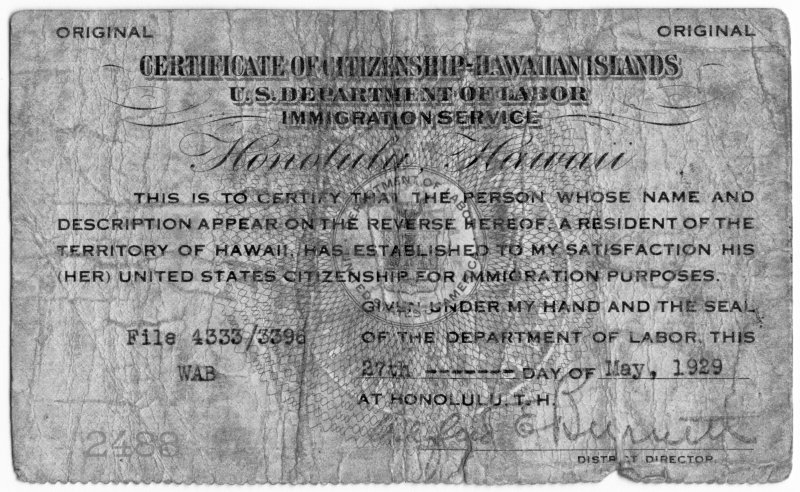 ORIGINAL ORIGINAL
CERTIFICATE OF CITIZENSHIP-HAWAIIAN ISLANDS
U.S. DEPARTMENT OF LABOR
IMMIGRATION SERVICE
Honolulu, Hawaii
THIS IS TO CERTIFY THAT THE PERSON WHOSE NAME AND
DESCRIPTION APPEAR ON THE REVERSE HEREOF, A RESIDENT OF THE
TERRITORY OF HAWAII, HAS ESTABLISHED TO MY SATISFACTION HIS
(HER) UNITED STATES CITIZENSHIP FOR IMMIGRATION PURPOSES.
GIVEN UNDER MY HAND AND THE SEAL
File 4333/3396 OF THE DEPARTMENT OF LABOR, THIS
WAB 27th ------- DAY OF May, 1929
AT HONOLULU, T. H.
E Burnett
2488
DISTRICT DIRECTOR.
DEPARTMENT OF LABOR
AMERICA